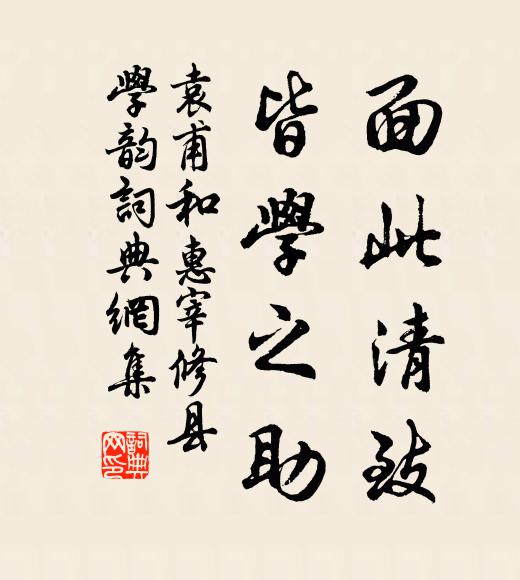 面此清致
皆學之助
袁甫和惠宰修县
學韵詞典網集
詞典网印